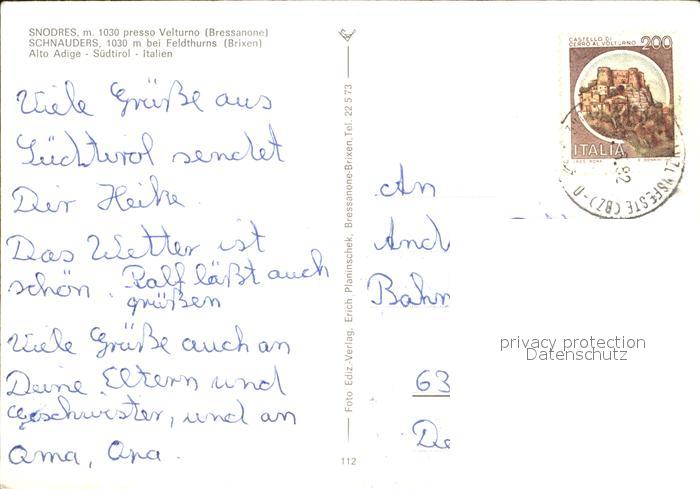 SNODRES, m. 1030 presso Velturno (Bressanone)
SCHNAUDERS, 1030 m bei Feldthurns (Brixen)
Alto Adige - Südtirol - Italien
Viele Grüße aus
Südtirol sendet
Dir Heike.
Das Wetter ist
schön. Ralf läßt auch
grüßen
Viele Grüße auch an
Deine Eltern und
Geschwister, und an
Oma, Opa.
Foto Ediz.-Verlag, Erich Planinschek, Bressanone-Brixen, Tel. 22 5 73
112
CASTELLO DI
CERRO AL VOLTURNO 200
ITALIA
An
And
Bahn
63
De
privacy protection
Datenschutz